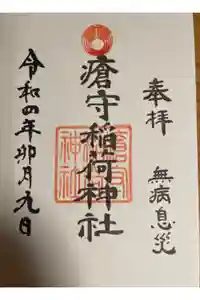 奉拝
無病息災
瘡守稲荷神社
令和四年卯月九日